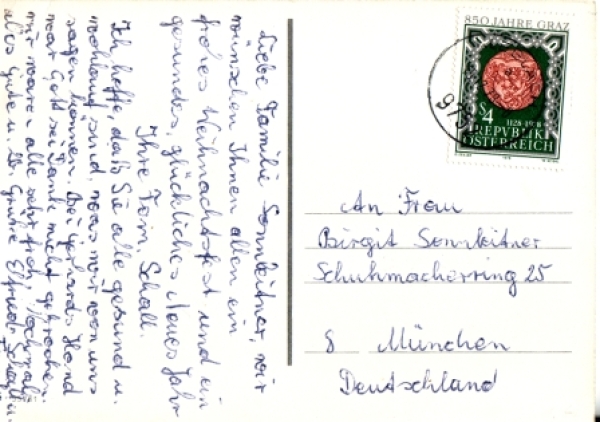 Liebe Familie Sonnleitner, wir
wünschen Ihnen allen ein
frohes Weihnachtsfest und ein
gesundes, glückliches Neues Jahr
Ihre Fam. Schall.
Ich hoffe, daß Sie alle gesund u.
wohlauf sind, was wir von uns
sagen können. Bei Gerhards Hand
war Gott sei Dank nicht gebrochen.
wir waren alle sehr froh. Nochmals
alles Gute u. lb. Grüße Elfriede Schall u.
850 JAHRE GRAZ
1128-1978
S4
REPVBLIK
ÖSTERREICH
975
An Frau
Birgit Sonnleitner
Schuhmacherring 25
8 München
Deutschland